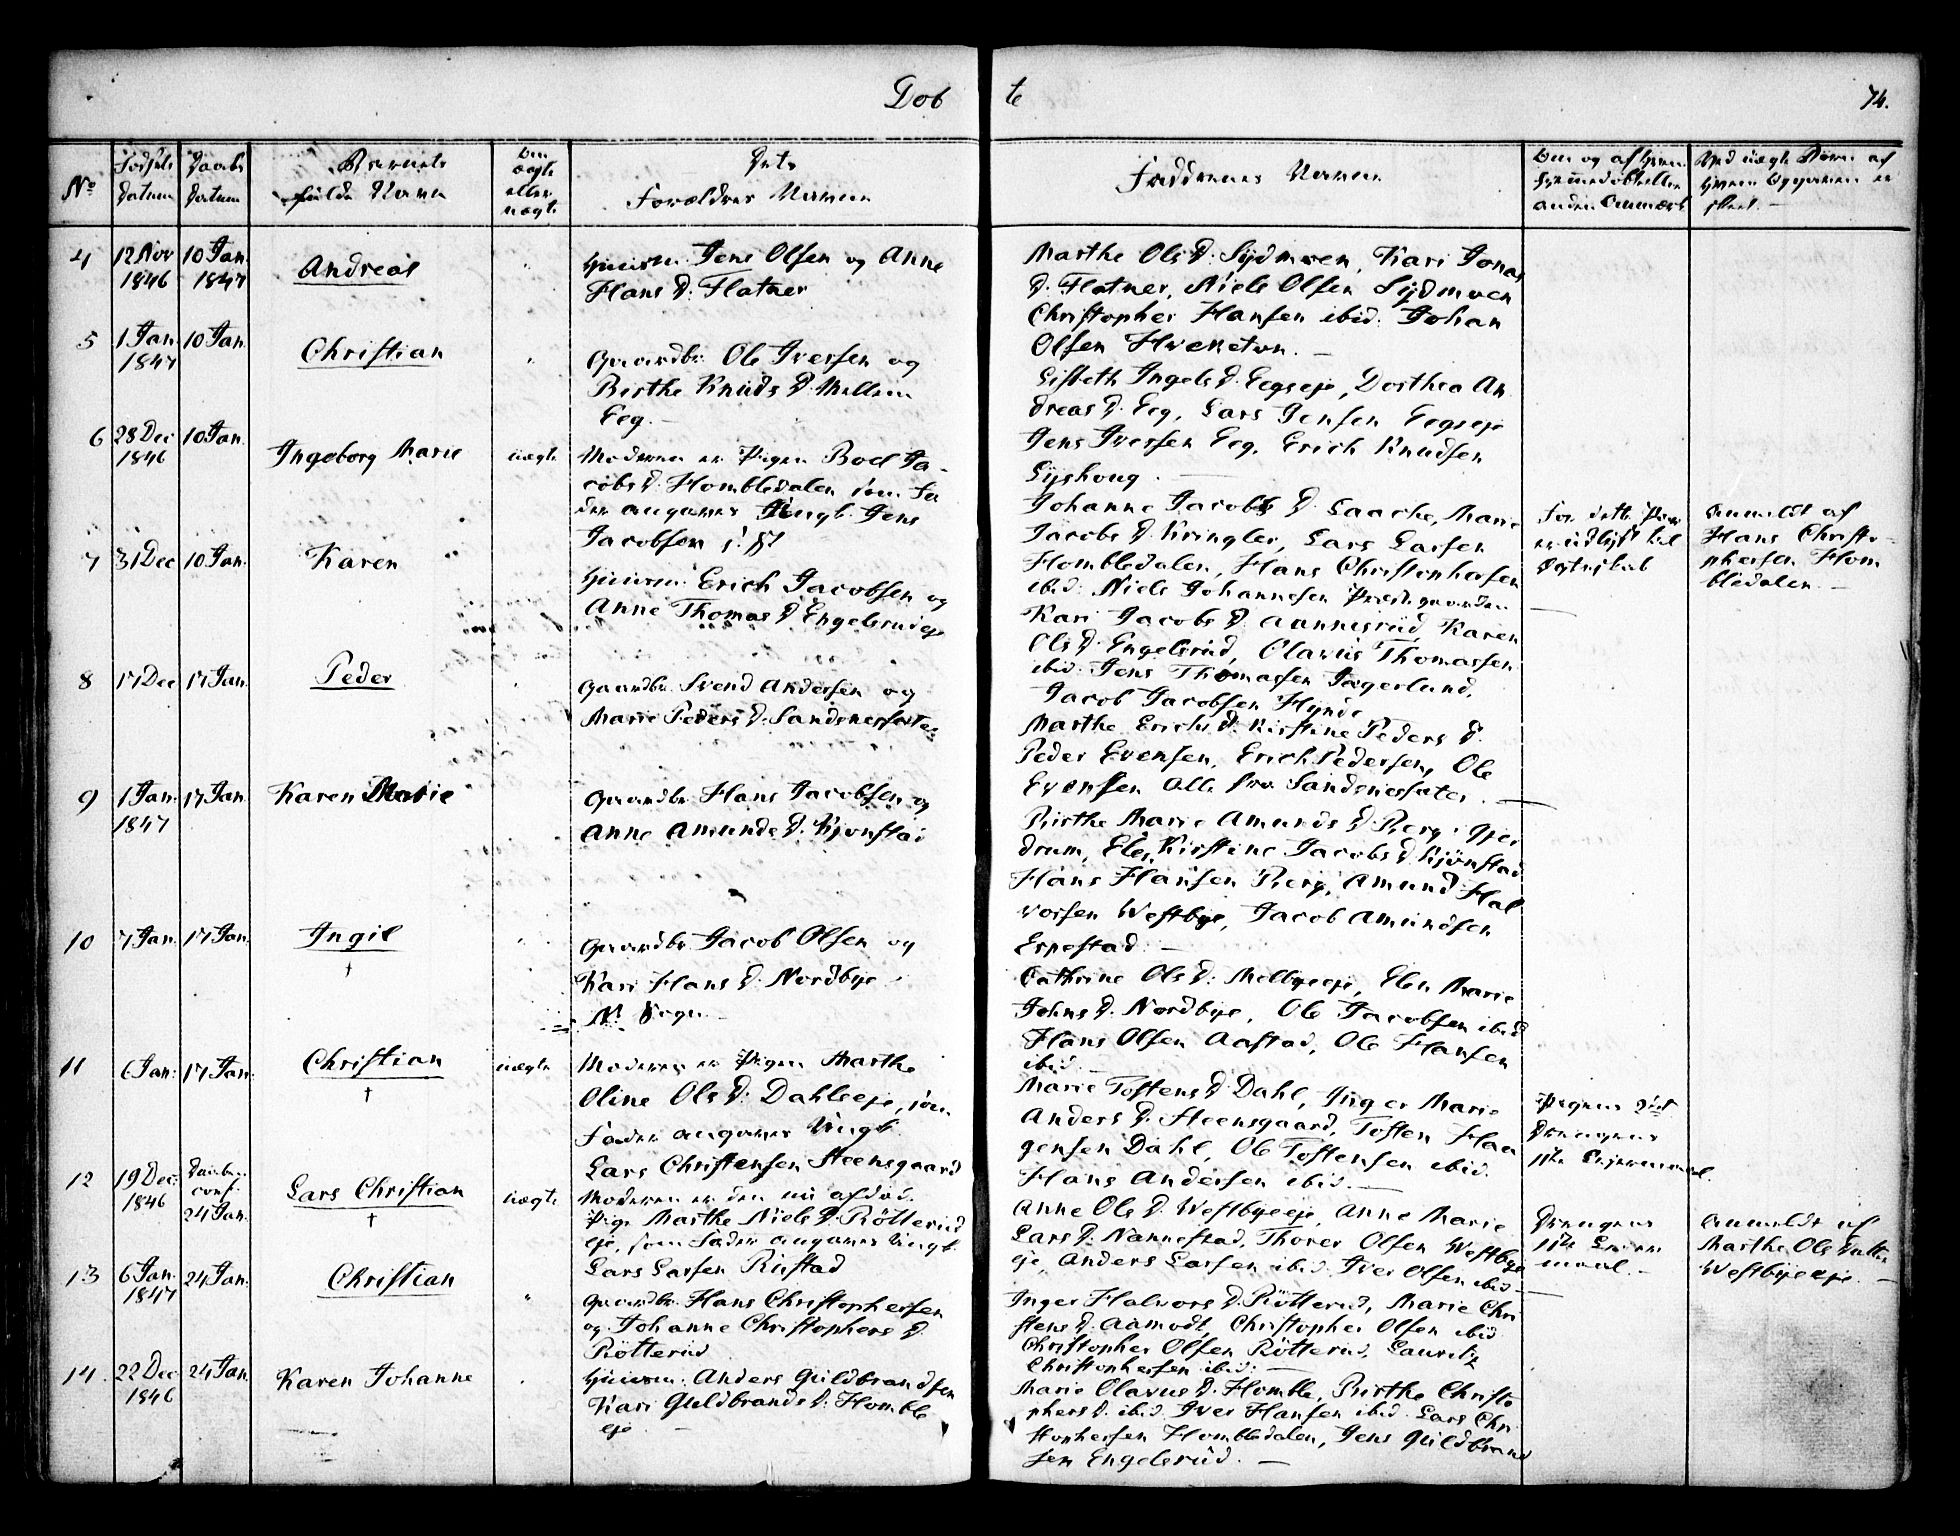 Døb te 74.
No
Fødsels Datum
Daabs Datum
Barnets fulde Navn
Om ægte eller uægte
Dets Forældres Navne
Faddernes Navne
4 12 Nov 1846 10 Jan. 1847 Andreas
Huusm. Jens Olsen og Anne
Hans D. Flatner
Marthe Ols D. Sydmoen, Kari Jonas
D. Flatner, Niels Olsen Sydmoen
Christopher Hansen ibid. Johan
Olsen
5 1 Jan. 1847 10 Jan. Christian
Gaardbr. Ole Iversen og
Birthe Knuds D. Mellem
Eeg.
Lisbeth Ingels D. Eegseje, Dorthea An
dreas D. Eeg, Lars Jensen Eegseje
Jens Iversen Eeg, Erich Knudsen
6 28 Dec 1846 10 Jan. Ingeborg Marie uægte
Moderen er Pigen Boel Ja-
cobs D. Hombledalen som Fa
der angives Ungk. Jens
Jacobsen
Johanne Jacobs D. Saache, Marie
Jacobs D. Kringler, Lars Larsen
Hombledalen, Hans Christophersen
ibid. Niels Johannesen Præstegaarden
For dette Par
er udlyst til
Ægteskab
Anmeldt af
Hans Christo-
phersen Hom
bledalen. -
7 31 Dec 10 Jan. Karen
Huusm. Erich Jacobsen og
Anne Thomas D. Engelsrudeje
Kari Jacobs D. Aannesrud, Karen
Ols D. Engelsrud, Olavus Thomassen
ibid. Jens Thomassen Jægerlund,
Jacob Jacobsen Hynde
8 17 Dec 17 Jan. Peder
Gaardbr. Svend Andersen og
Marie Peders D. Sandnessæter
Marthe Erichs D. Kirstine Peders D.
Peder Evensen, Erich Pedersen, Ole
Evensen Alle fra Sandnessæter. -
9 1 Jan. 1847 17 Jan. Karen Marie
Gaardbr. Hans Jacobsen og
Anne Amunds D. Kjønstad
Birthe Marie Amunds D. Berg i Gjer
drum, Elen Kirstine Jacobs D. Kjønstad
Hans Hansen Berg, Amund Hal
vorsen Westbye, Jacob Amundsen
Erpestad. -
10 7 Jan. 17 Jan. Ingil †
Gaardbr. Jacob Olsen og
Kari Hans D. Nordbye
N. Sogn
Cathrine Ols D. Melbyeeje, Elen Marie
Johns D. Nordbye, Ole Jacobsen ibid
Hans Olsen Aastad, Ole Hansen
ibid. -
11 6 Jan. 17 Jan. Christian † uægte
Moderen er Pigen Marthe
Oline Ols D. Dahleeje, som
Fader angives Ungk.
Lars Christensen Steensgaard
Marie Tostens D. Dahl, Inger Marie
Anders D. Steensgaard, Tosten Haa
gensen Dahl, Ole Tostensen ibid.
Hans Andersen ibid. -
Pigens 2det
Drengens
1ste Lejermaal.
12 19 Dec. 1846 Daaben conf. 24 Jan. Lars Christian † uægte
Moderen er den nu afdød.
Pige Marthe Niels D. Rötterud
eje, som Fader angives Ungk.
Lars Larsen Rustad
Anne Ols D. Westbyeeje, Anne Marie
Lars D. Nannestad, Thorer Olsen Westbye
eje, Anders Larsen ibid. Iver Olsen ibid -
Drengens
1ste Leier
maal. -
Anmeldt af
Marthe Ols Datter
Westbyeeje. -
13 6 Jan. 1847 24 Jan. Christian
Gaardbr. Hans Christophersen
og Johanne Christophers D.
Rötterud
Inger Halvors D. Rötterud, Marie Chri
stens D. Aamodt, Christopher Olsen ibid
Christopher Olsen Rötterud, Lauritz
Christophersen ibid. -
14. 22 Dec 1846 24 Jan. Karen Johanne
Huusm. Anders Guldbrandsen
Kari Guldbrands D. Homble
eje. -
Marie Olavus D. Homble, Birthe Christo
phers D. ibid. Iver Hansen ibid. Lars Chri
stophersen Hombledalen, Jens Guldbrand
sen Engelsrud. -